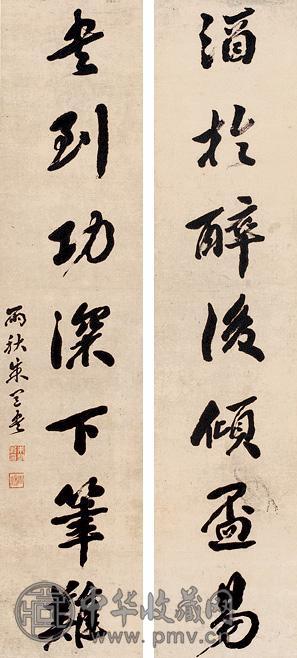 酒於醉後傾盃易
書到功深下筆難
雨秋朱書
中华收藏网
www.pmv.cn